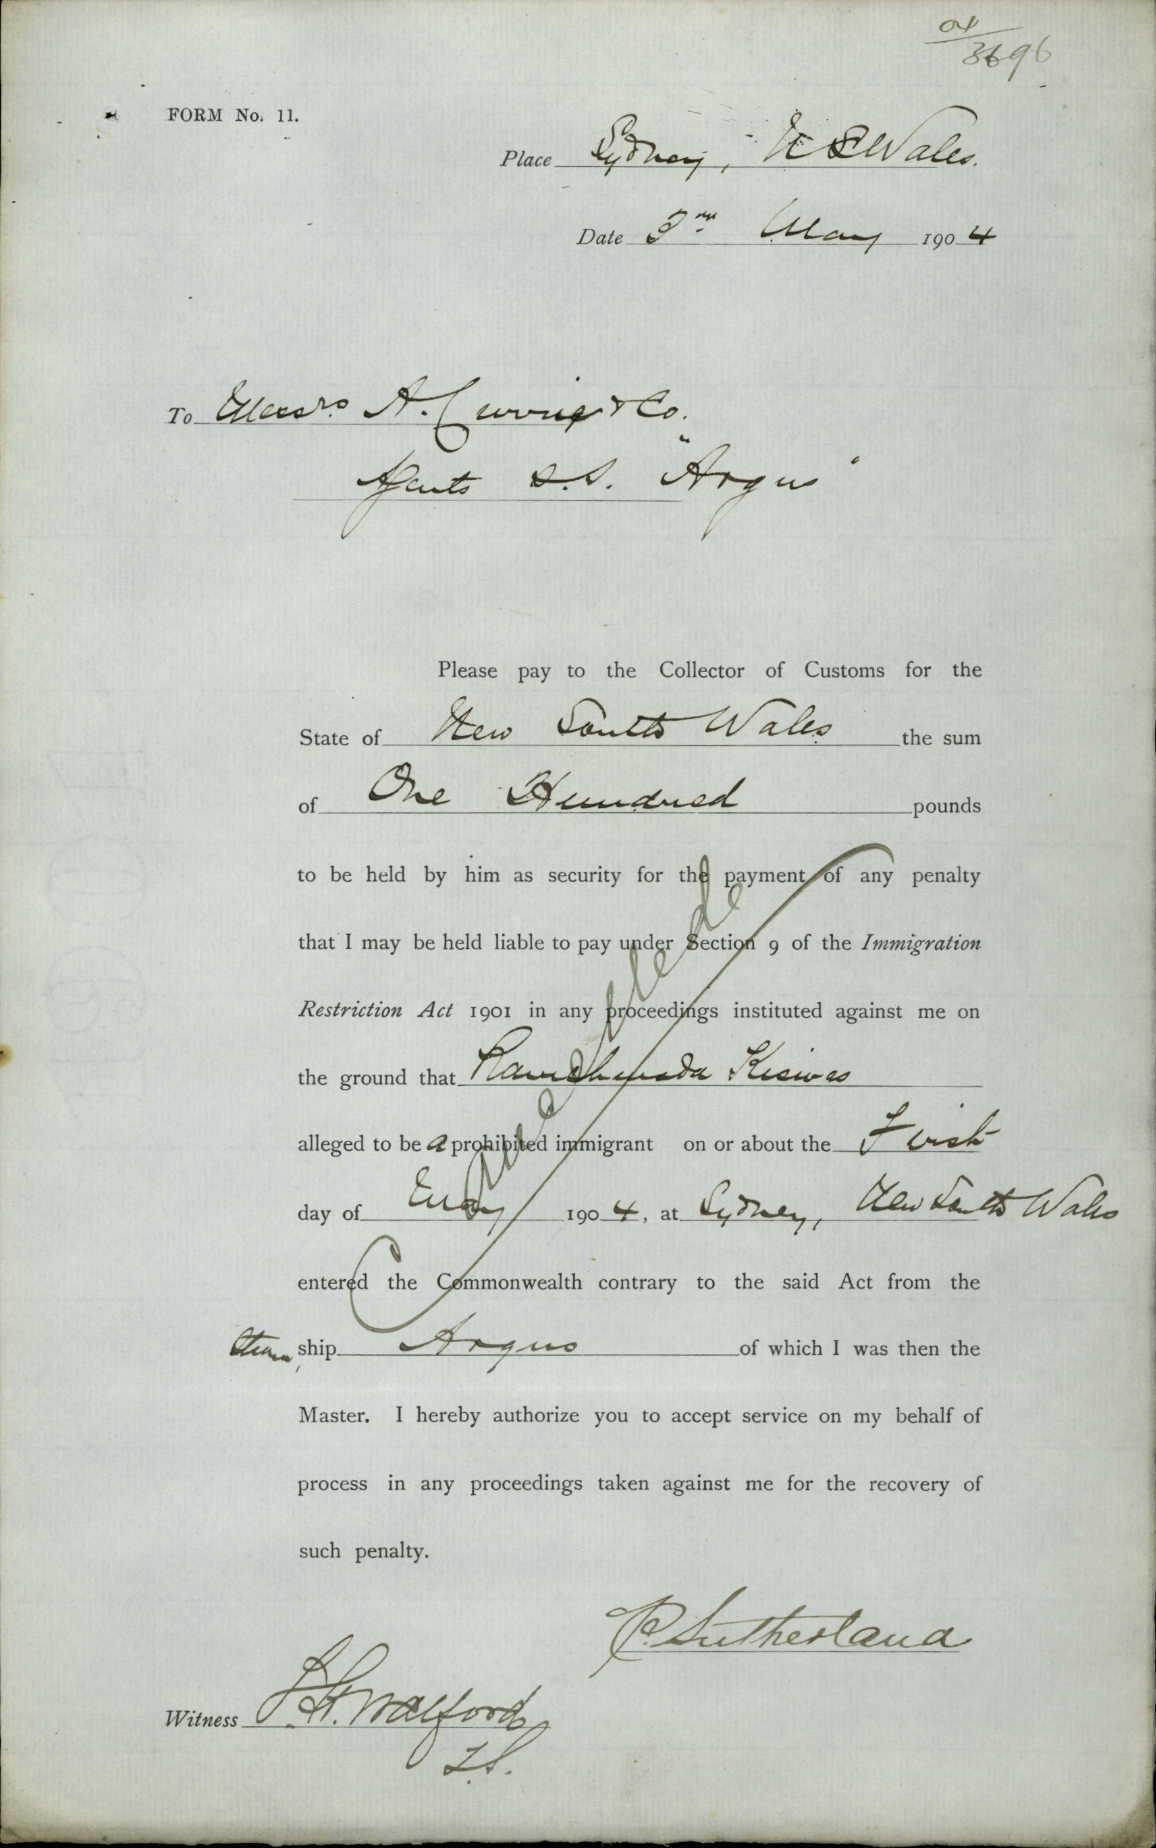 04/3696
FORM No. 11.
Place Sydney, N S Wales.
Date 3rd May 1904
To Messrs. A. Currie & Co.
Agents s.s. "Argus"
Please pay to the Collector of Customs for the
State of New South Wales the sum
of One Hundred pounds
to be held by him as security for the payment of any penalty
that I may be held liable to pay under Section 9 of the Immigration
Restriction Act 1901 in any proceedings instituted against me on
the ground that
alleged to be a prohibited immigrant on or about the First
day of May 1904, at Sydney, New South Wales
entered the Commonwealth contrary to the said Act from the
steam ship Argus of which I was then the
Master. I hereby authorize you to accept service on my behalf of
process in any proceedings taken against me for the recovery of
such penalty.
Cancelled
P. Sutherland
Witness Walford